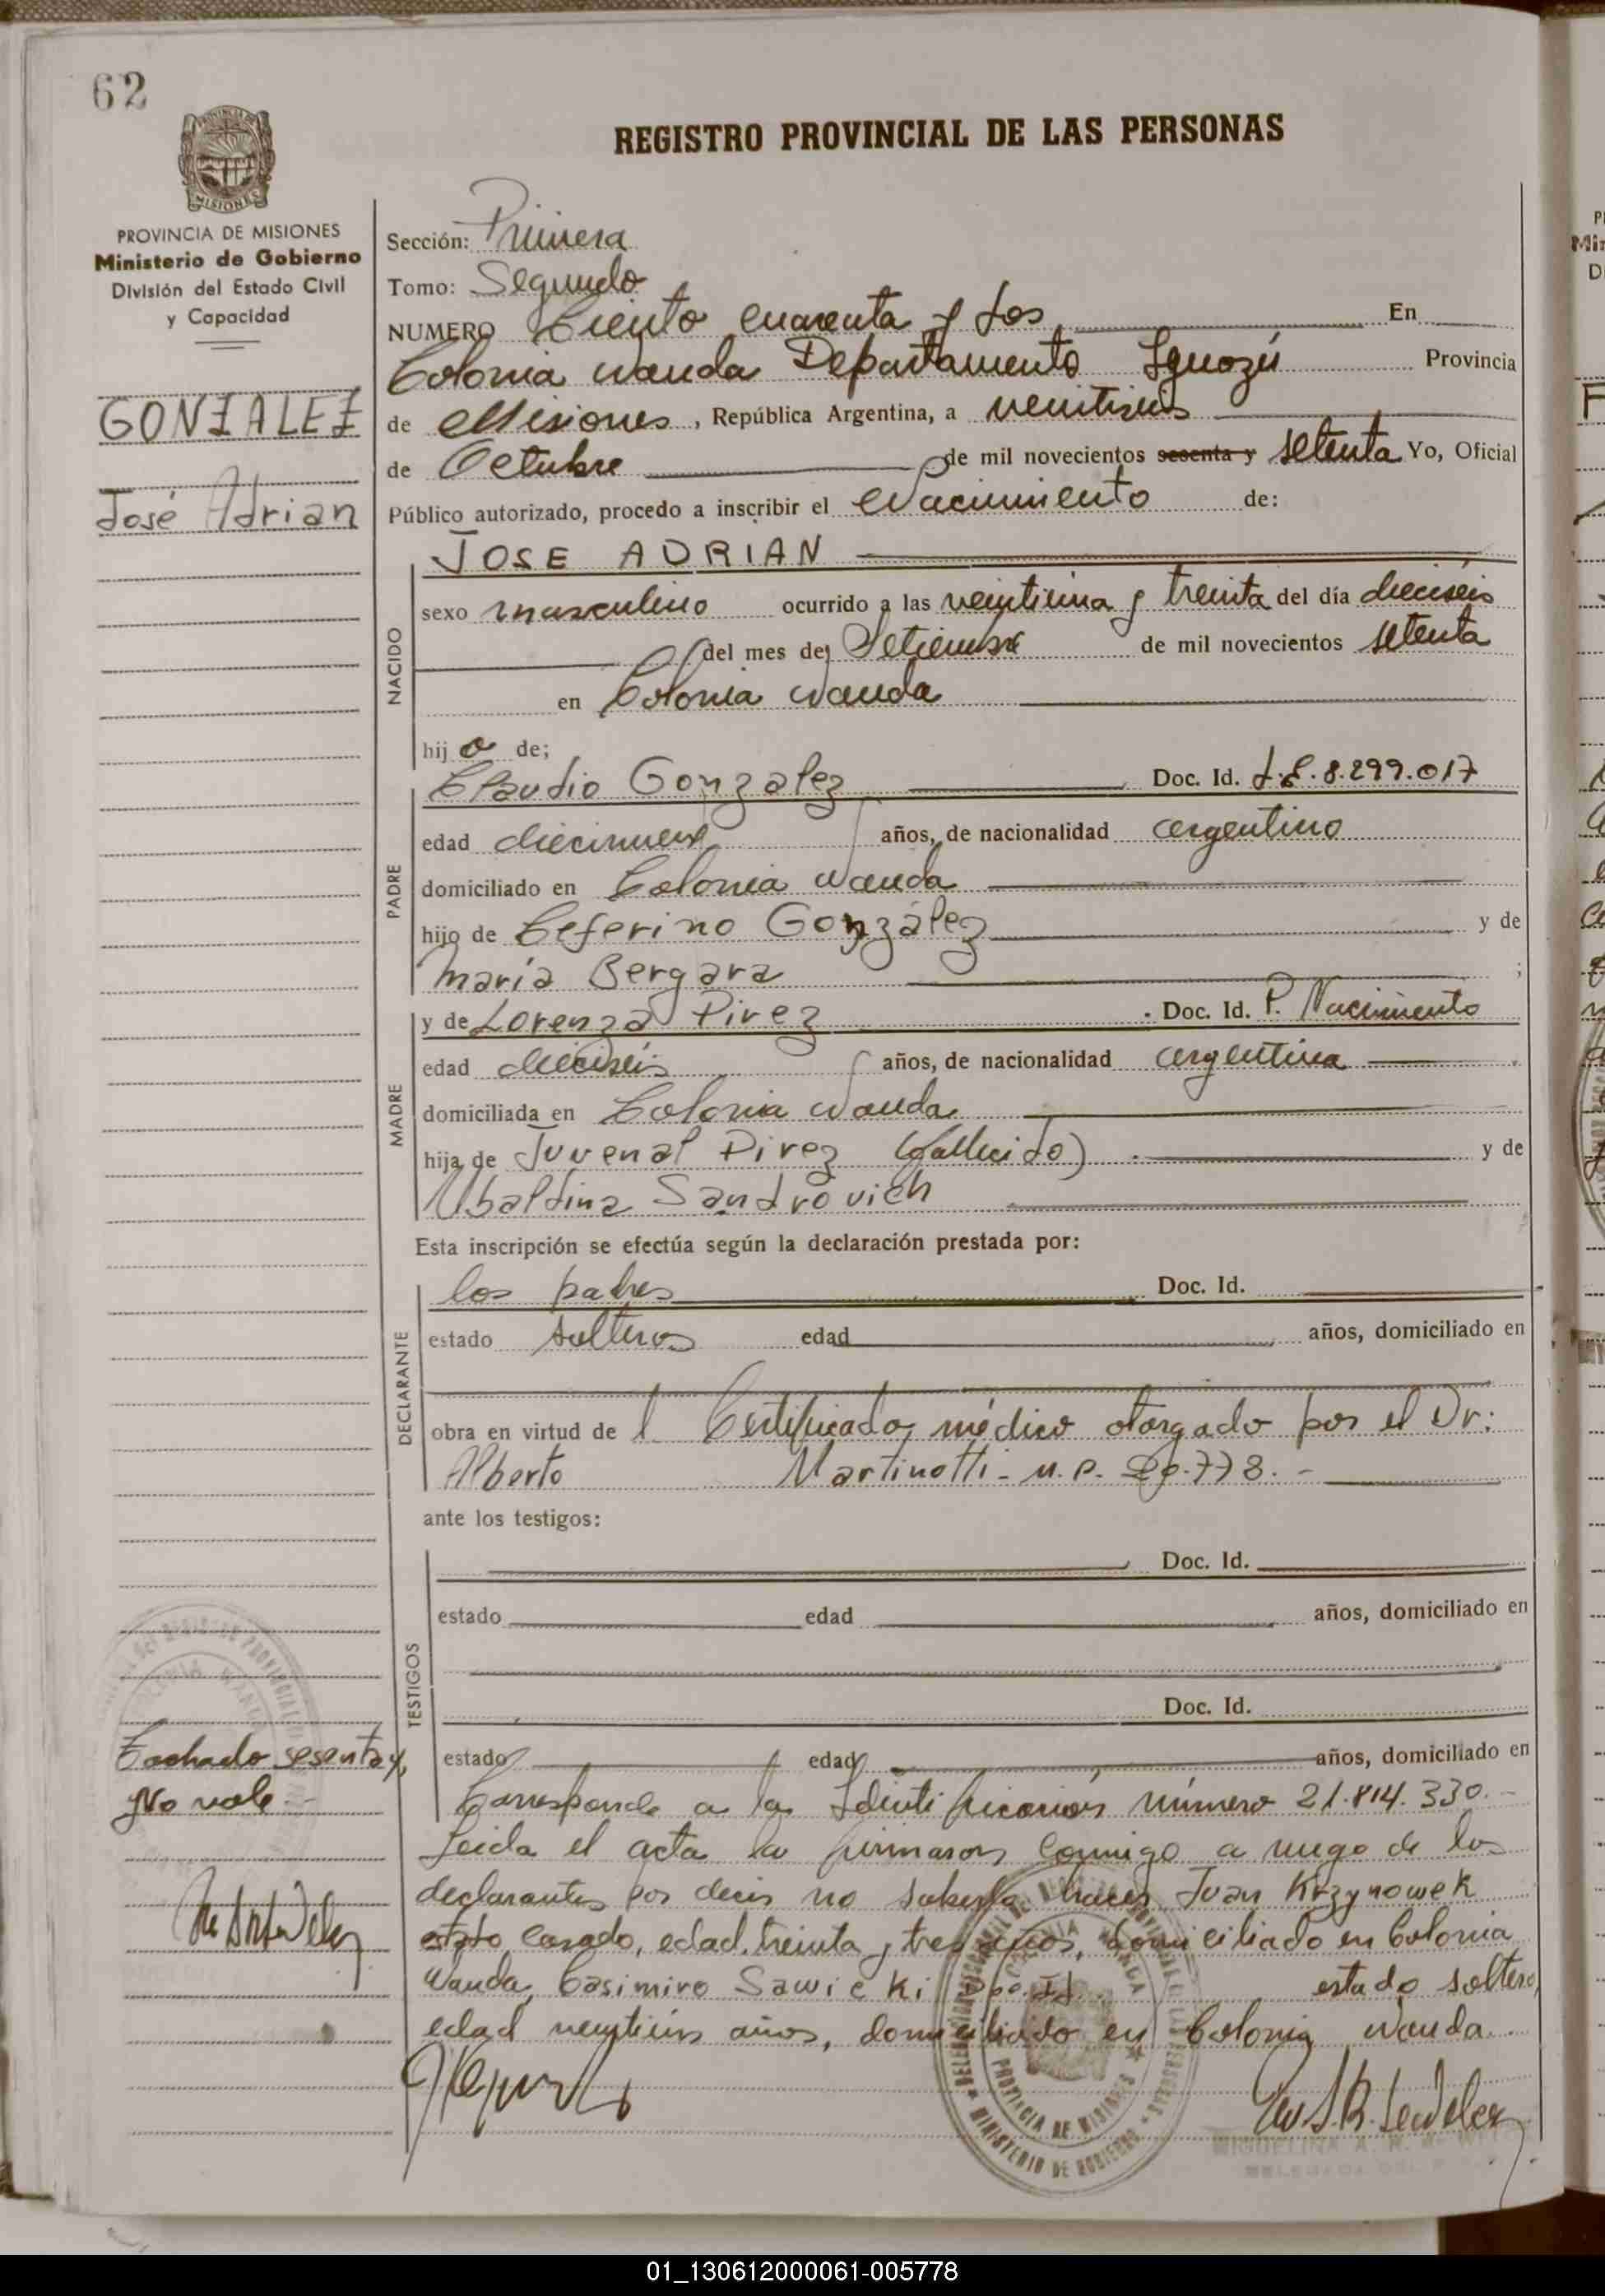 62
REGISTRO PROVINCIAL DE LAS PERSONAS
MISIONES
PROVINCIA DE MISIONES
Ministerio de Gobierno
División del Estado Civil
y Capacidad
GONZALEZ
José Adrian
Sección: Primera
Tomo: Segundo
NUMERO Ciento cuarenta y dos En
Colonia Wanda Departamento Iguazú Provincia
de Misiones, República Argentina, a
de Octubre de mil novecientos sesenta y setenta Yo, Oficial
Público autorizado, procedo a inscribir el Nacimiento de:
JOSE ADRIAN
NACIDO
sexo masculino ocurrido a las veintiuna y treinta del día dieciseis
del mes de Setiembre de mil novecientos setenta
en Colonia Wanda
hijo de;
PADRE
Claudio Gonzalez Doc. Id. L.E. 8.299.017
edad diecinueve años, de nacionalidad argentino
domiciliado en Colonia Wanda
hijo de Ceferino González y de
María Bergara ;
MADRE
y de Lorenza Pirez Doc. Id. P. Nacimiento
edad dieciseis años, de nacionalidad argentina
domiciliada en Colonia Wanda
hija de Juvenal Pirez (fallecido) y de
Ubaldina Sandrovich
Esta inscripción se efectúa según la declaración prestada por:
DECLARANTE
los padres Doc. Id.
estado solteros edad años, domiciliado en
obra en virtud de l Certificado médico otorgado por el Dr:
Alberto Martinotti - M.P.
ante los testigos:
TESTIGOS
Doc. Id.
estado edad años, domiciliado en
Doc. Id.
estado edad años, domiciliado en
Tachado sesenta y,
No vale.-
Corresponde a la Identificación número 21.814.330.-
Leida el acta la firmaron conmigo a ruego de los
declarantes por decir no saberla hacer Juan Krzynowek
estdo casado, edad treinta y tres años, domiciliado en Colonia
Wanda, Casimiro Sawicki Doc. Id. estado soltero,
edad años, domiciliado en Colonia Wanda.
COLONIA WANDA
PROVINCIA DE MISIONES
MINISTERIO DE GOBIERNO
01_130612000061-005778